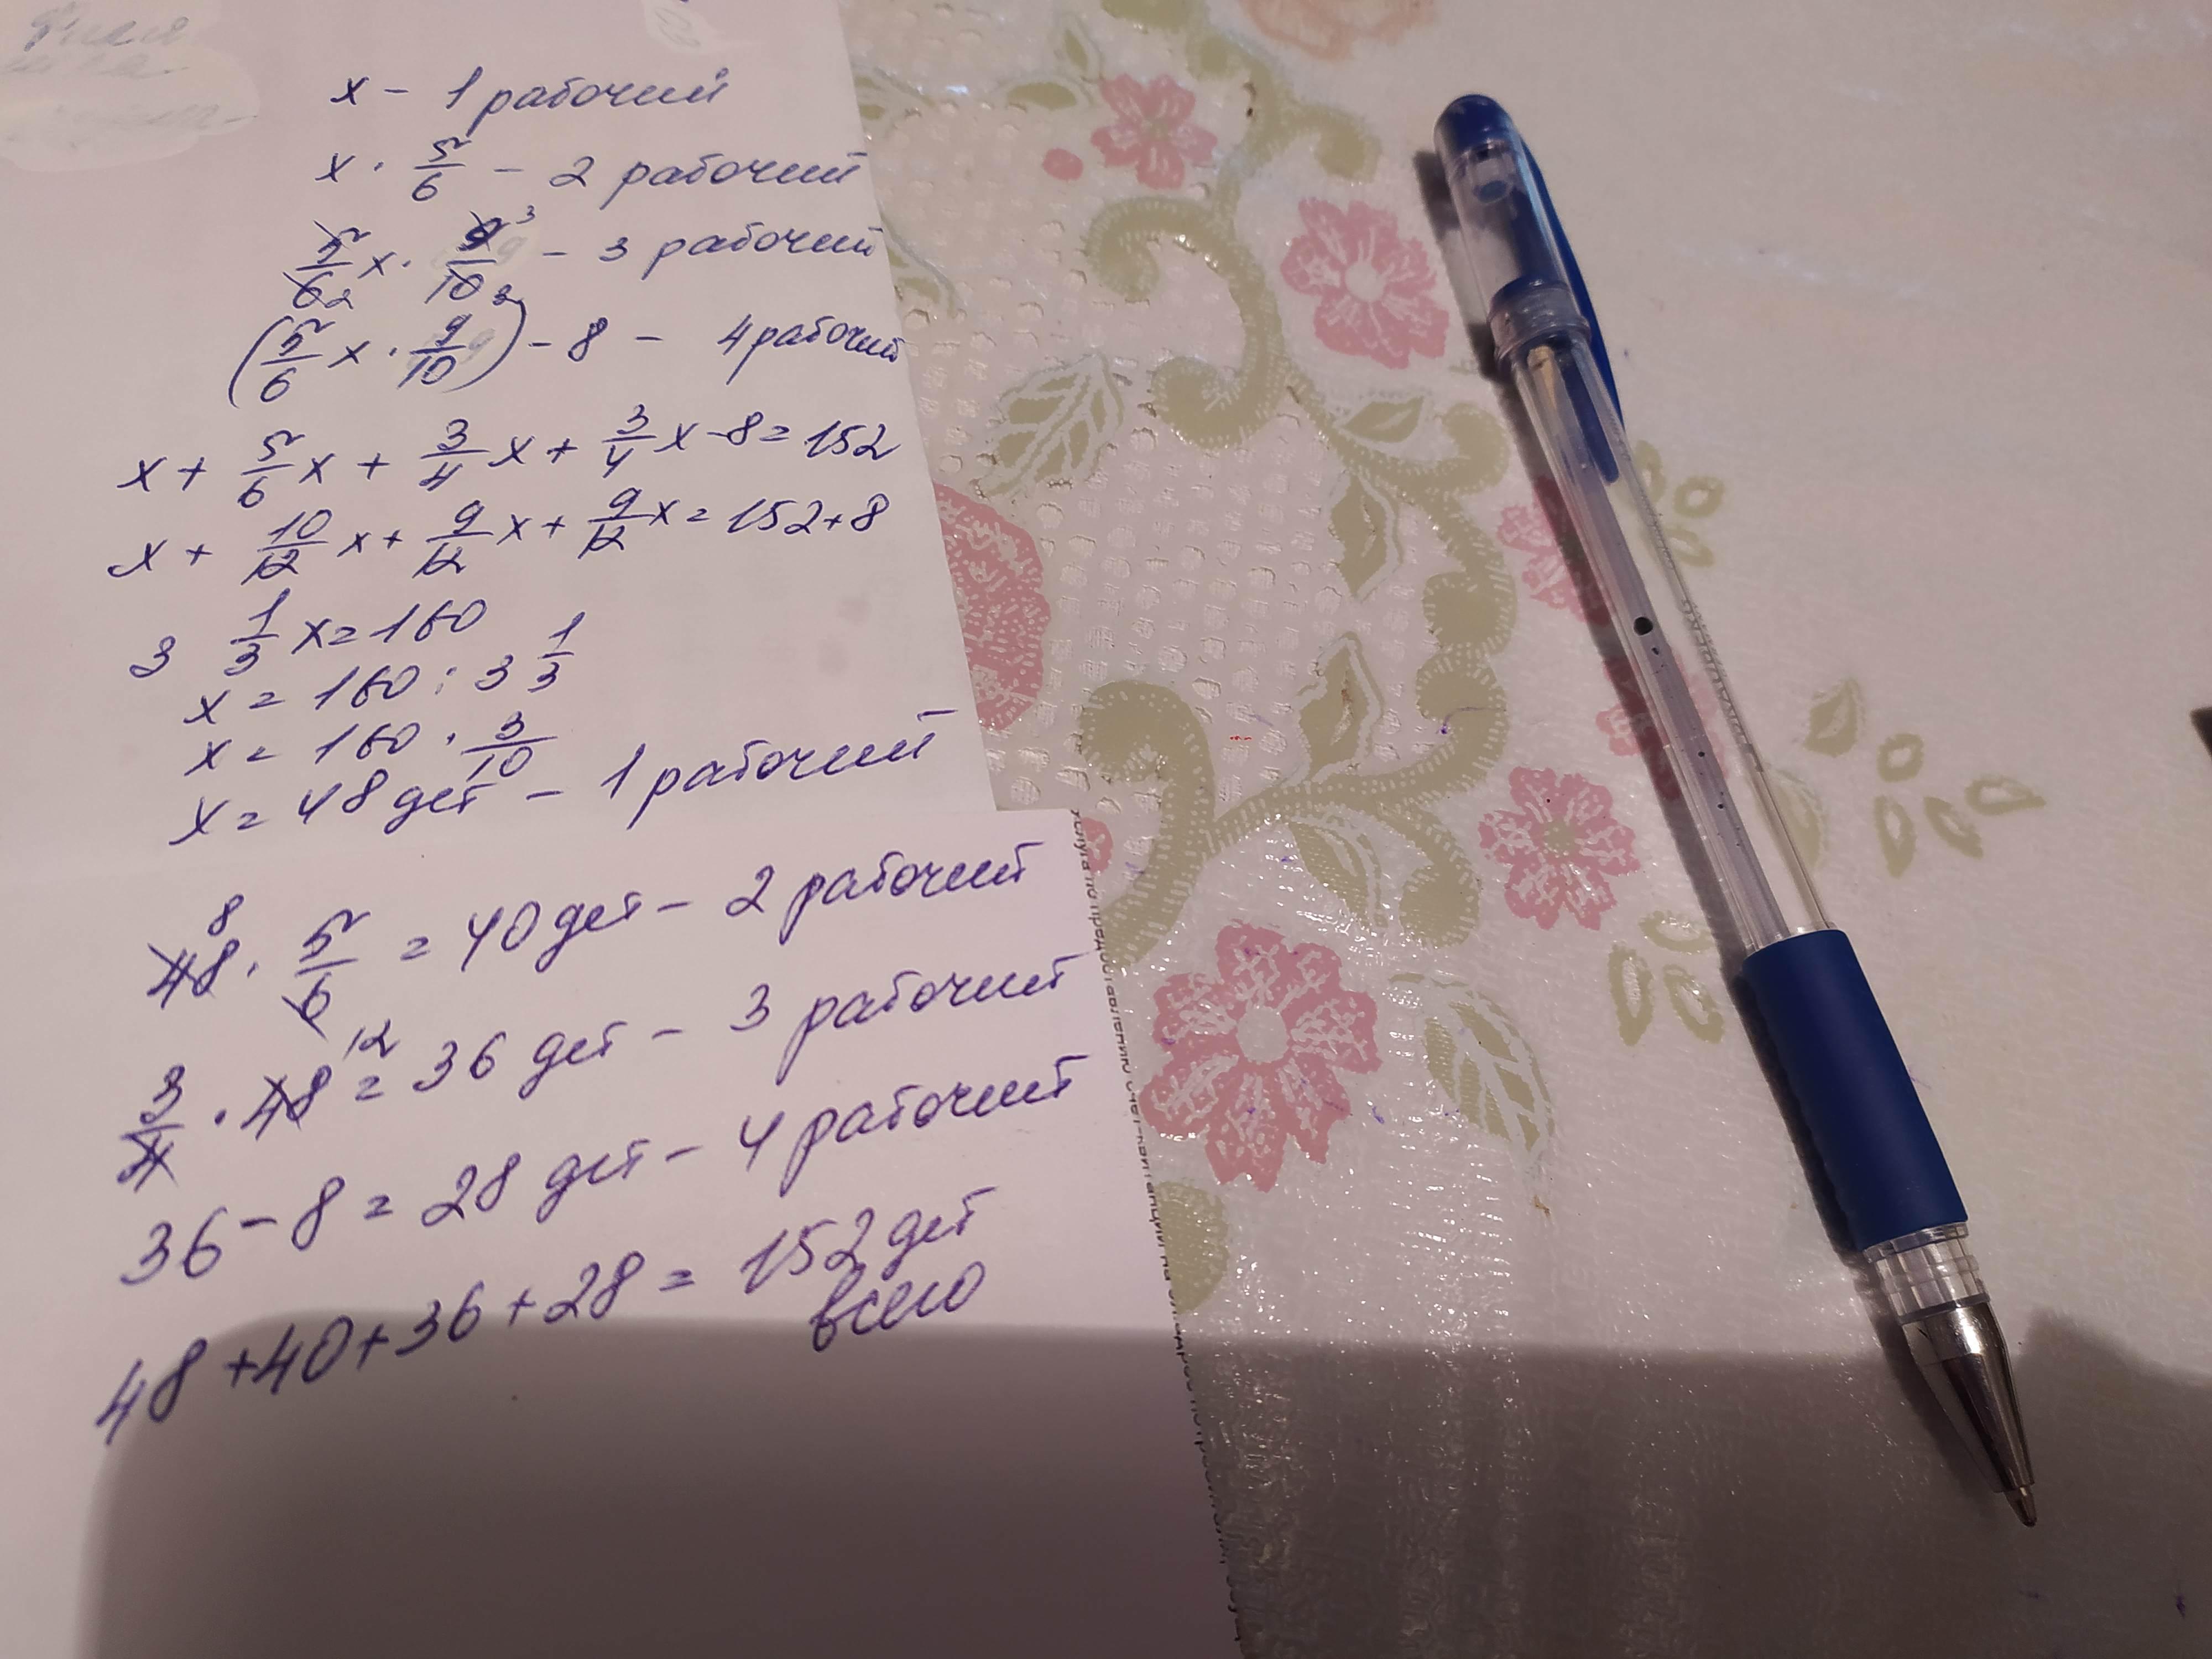 x - 1 рабочий
x · 5/6 - 2 рабочий
5/6 2 x · 9/10 3 2 - 3 рабочий
(5/6 x · 9/10) - 8 - 4 рабочий
x + 5/6 x + 3/4 x + 3/4 x - 8 = 152
x + 10/12 x + 9/12 x + 9/12 x = 152 + 8
3 1/3 x = 160
x = 160 : 3 1/3
x = 160 · 3/10
x = 48 дет - 1 рабочий -
48 8 · 5/6 = 40 дет - 2 рабочий
3/4 · 48 12 = 36 дет - 3 рабочий
36 - 8 = 28 дет - 4 рабочий
48 + 40 + 36 + 28 = 152 дет
всего